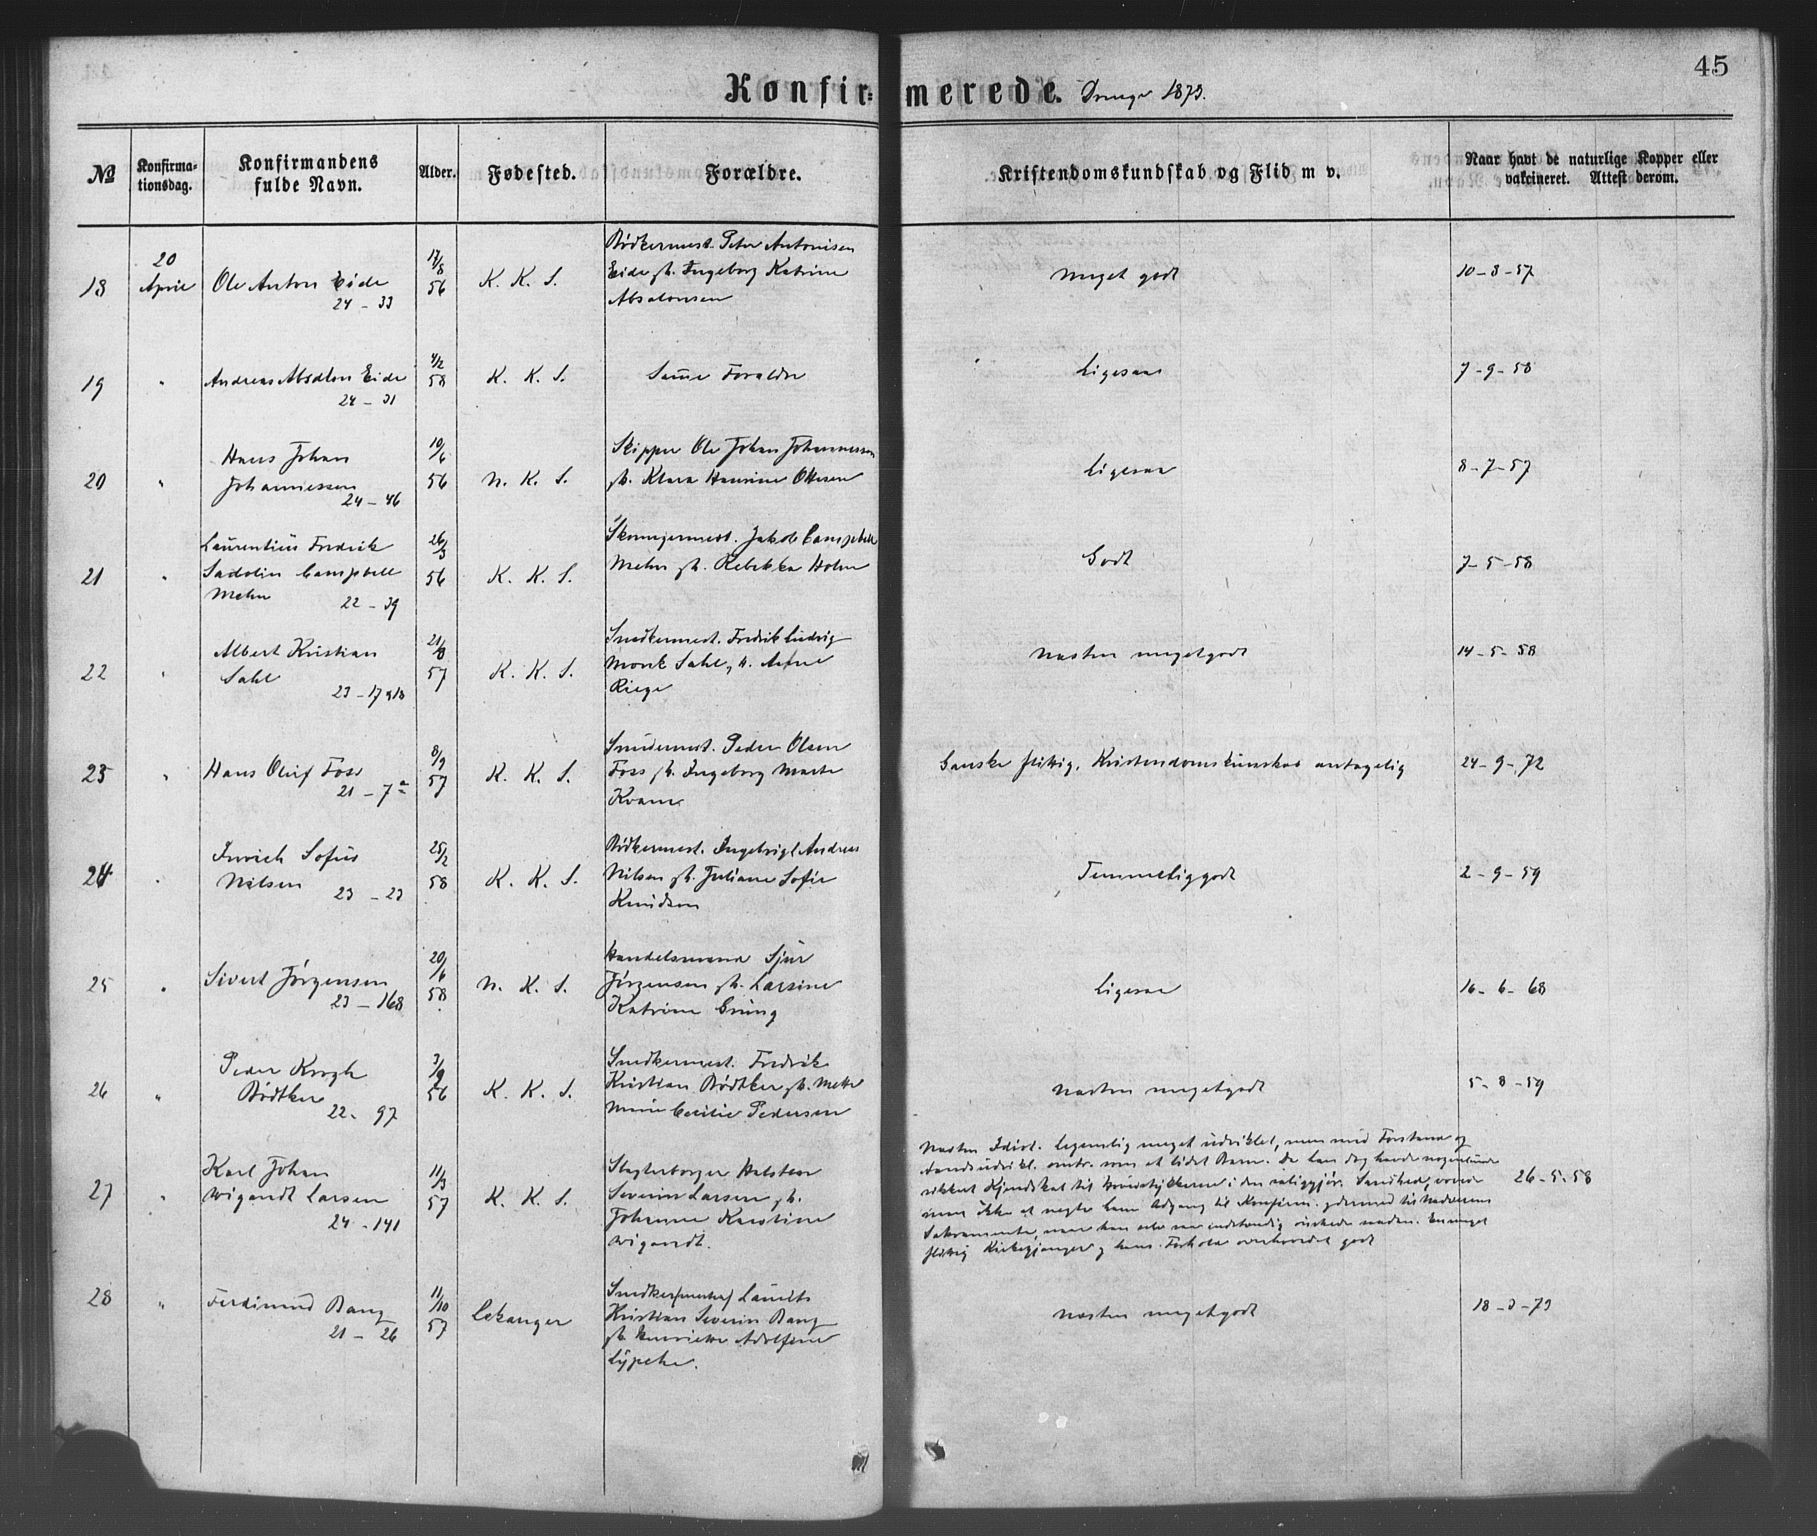 45
Konfirmerede. Drenge 1873.
№
Konfirma-
tionsdag.
Konfirmandens
fulde Navn.
Alder.
Fødested.
Forældre.
Kristendomskundskab og Flid m v.
Naar havt de naturlige Kopper eller
vakcineret. Attest derom.
18
20
April
Ole Anton Eide
24 - 33
17/8
56
K. K. S.
Bødkermest. Peter Antonisen
Eide gh. Ingeborg Katrine
Absalonsen
Meget godt
10-3-57
19
"
Andreas Absalon Eide
24 - 31
4/2
58
K. K. S.
Samme Forældre
Ligesaa
7-9-58
20
"
Hans Johan
Johannessen
24 - 46
10/6
56
N. K. S.
Skipper Ole Johan Johannessen
gh. Klara Hansine Ottesen
Ligesaa
8-7-57
21
"
Laurentius Fredrik
Sadolin Campbell
Mehn
22 - 39
26/3
56
K. K. S.
Skomagermest. Jakob Campbell
Mehn gh. Rebekka Holm
Godt
7-5-58
22
"
Albert Kristian
Sahl
23 - 17
21/8
57
K. K. S.
Snedkermest. Fredrik Ludvig
Sahl
Næsten meget godt
14-5-58
23
"
Hans Oluf Foss
21 - 7
8/9
57
K. K. S.
Peder Olsen
Foss gh. Ingeborg Marte
Kvam
Ganske flittig, Kristendomskundskab antagelig
24-9-72
24
"
Sofus
Nilsen
23 - 23
25/2
58
K. K. S.
Bødkermest. Ingebrigt Andreas
Nilsen gh. Juliane Sofie
Knudsen
Temmelig godt
2-9-59
25
"
Sivert Jørgensen
23 - 168
20/6
58
N. K. S.
Handelsmand Sjur
Jørgensen gh. Larsine
Katrine Grung
Ligesaa
16-6-68
26
"
Peder Krogh
Bødtker
22 - 97
3/9
56
K. K. S.
Snedkermest. Fredrik
Kristian Bødtker gh. Mette
Marie Cecilie Pedersen
Næsten meget godt
5-8-59
27
"
Karl Johan
Wigandt Larsen
24 - 141
11/3
57
K. K. S.
Slagterborger Halsten
Severin Larsen gh.
Johanne Karstine
Wigandt.
Næsten Idiot. Legemlig meget udviklet, men med Forstand og
Aandsudvikl. omtr. som et lidet Barn. Da han dog havde nogenlunde
sikkert Kjendskab til Hovedstykkerne i den saliggjør. Sandhed,
man ikke at negte ham Adgang til Konfirm. og dermed til Nadverens
Sakramente, naar han selv saa indstændig ønskede saaden. En meget
flittig Kirkegjænger og hans Forhold overhovedet godt
26-5-58
28
"
Ferdinand Bang
21 - 26
11/10
57
Lekanger
Snedker
Kristian Severin Bang
gh. Henriette Adolfine
Næsten meget godt
18-3-73